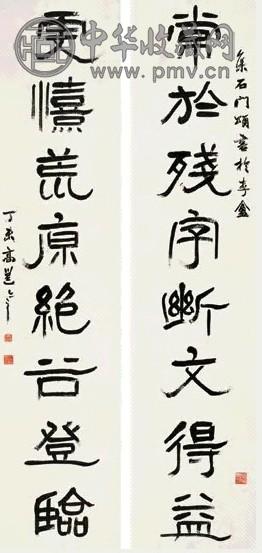 中华收藏网
www.pmv.cn
集石門頌書於李盦
常於殘字斷文得益
更憘荒原絕谷登臨
丁未高邕之